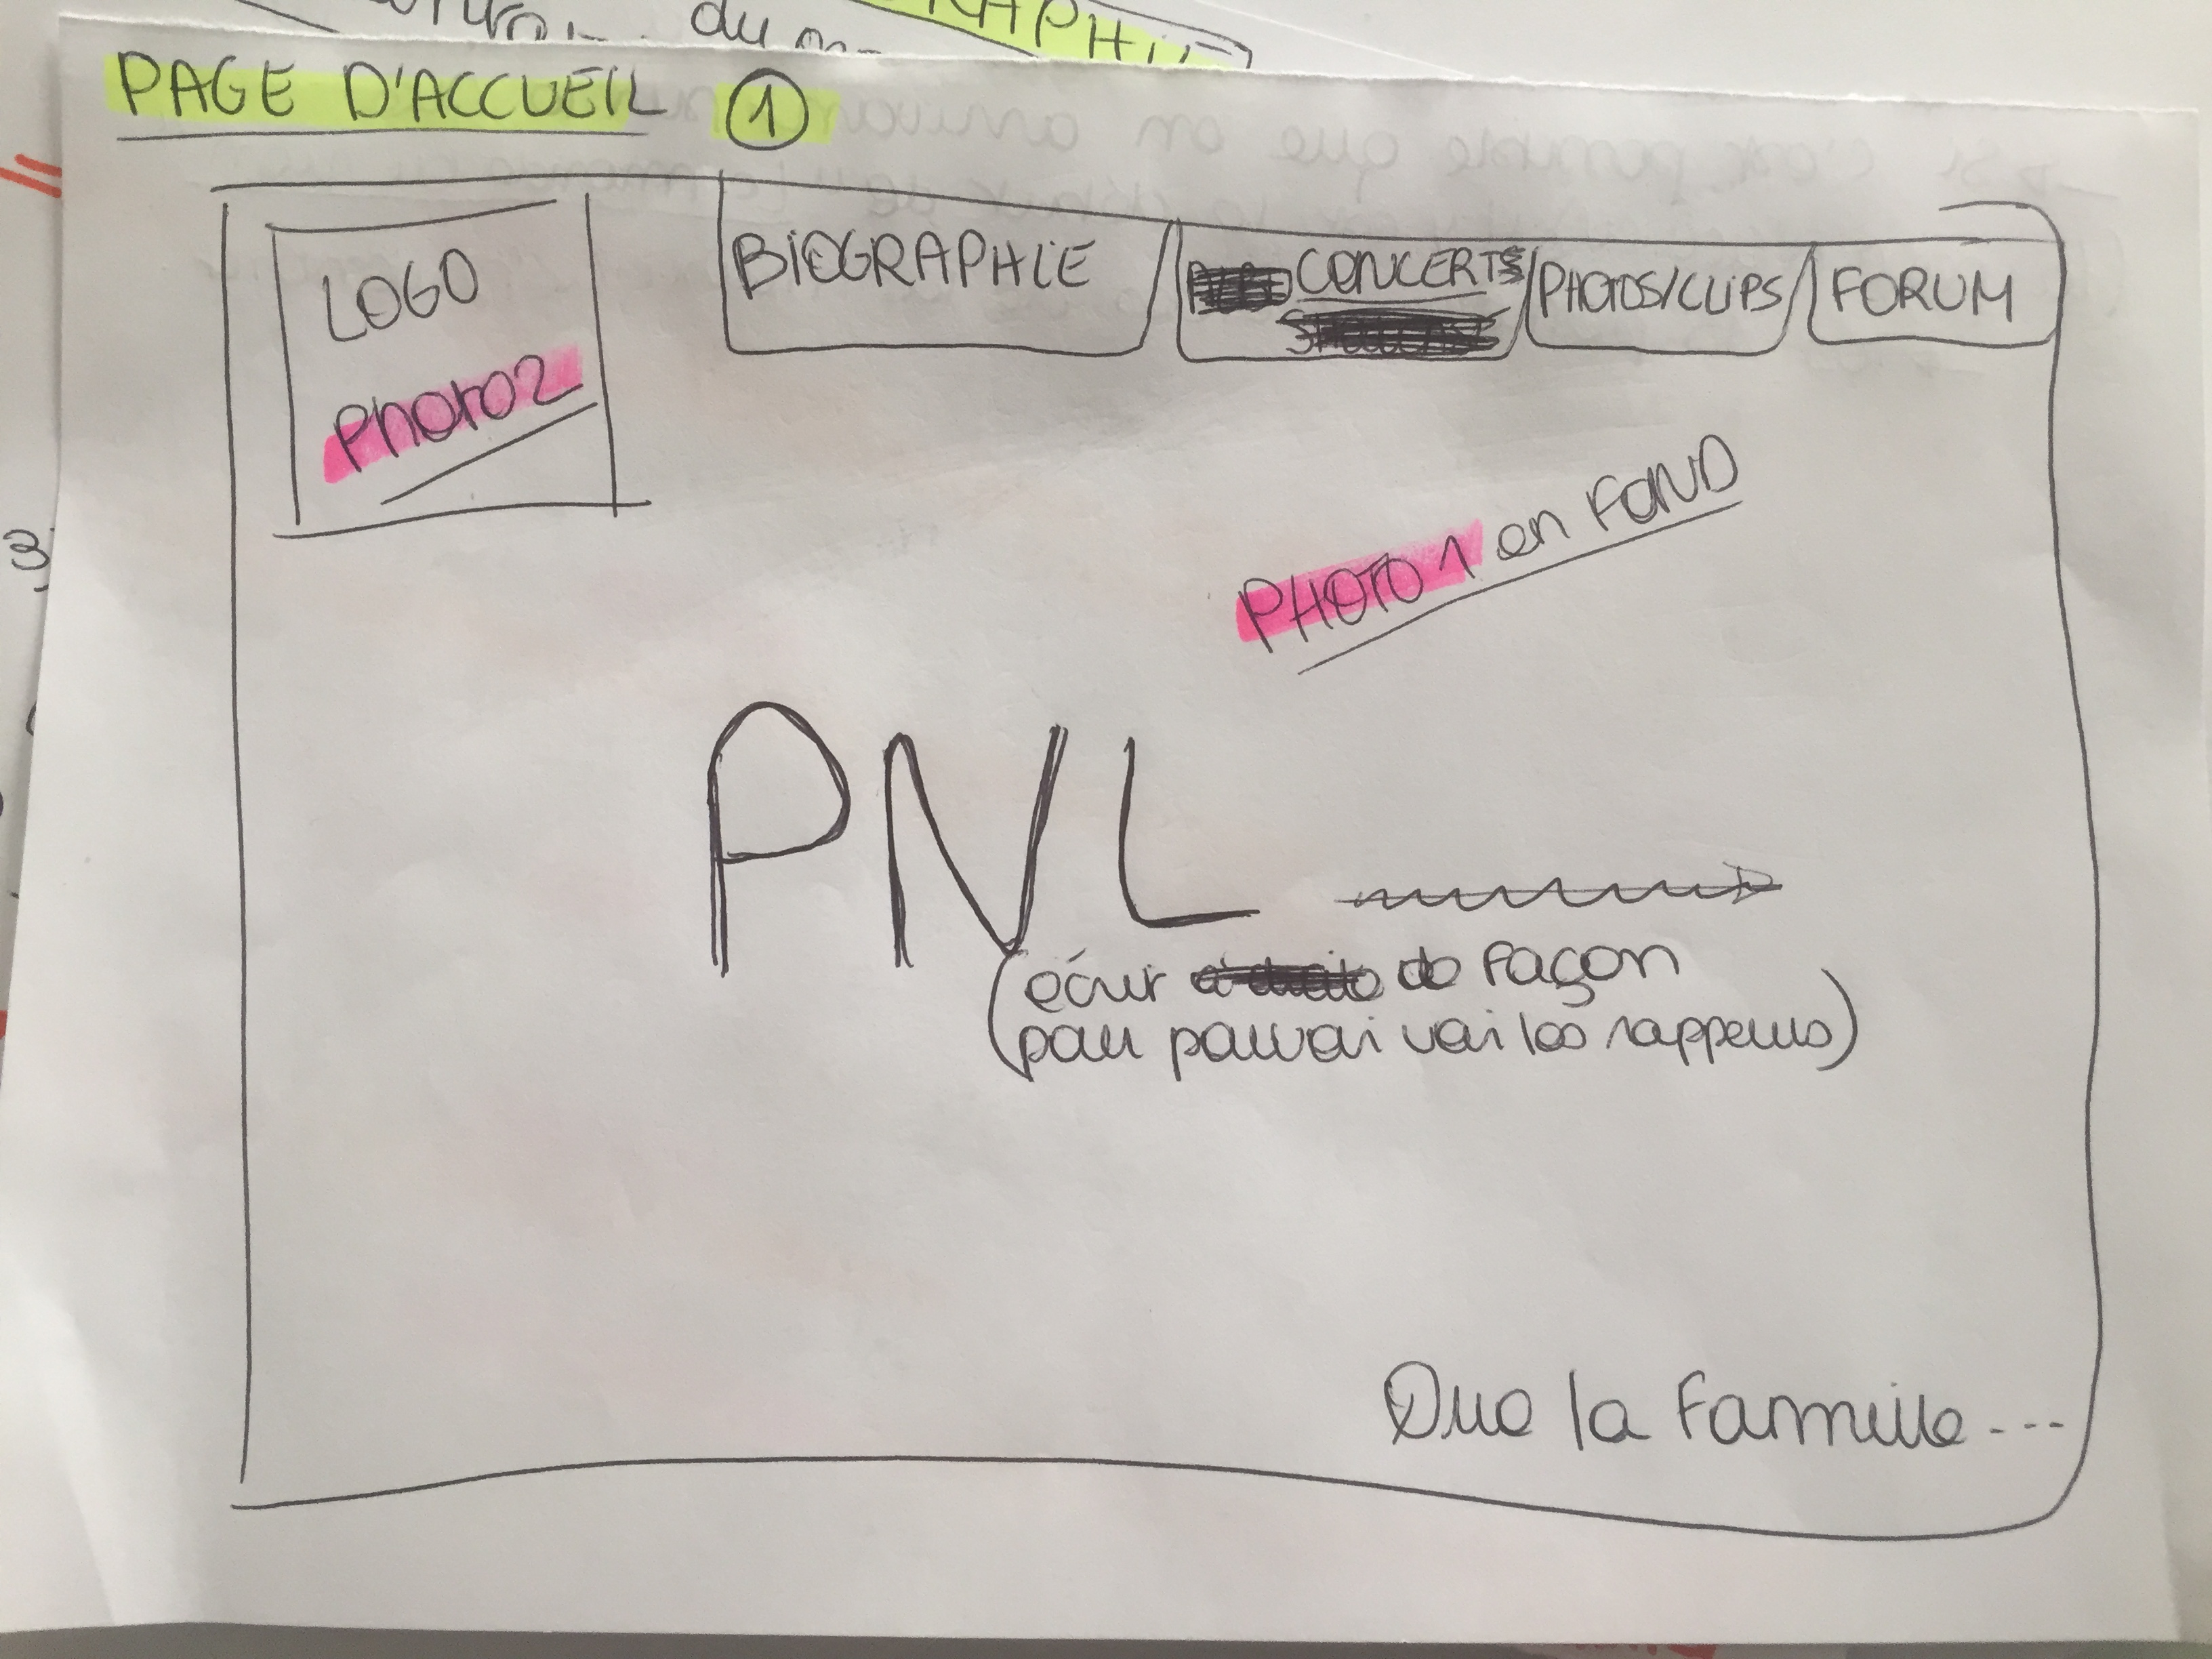 PAGE D'ACCUEIL 1
LOGO
PHOTO2
BIOGRAPHIE
CONCERTS
PHOTOS/CLIPS
FORUM
PHOTO 1 en FOND
PNL
écrir de façon
(pour pouvoir voir les rappeurs)
Que la famille ---